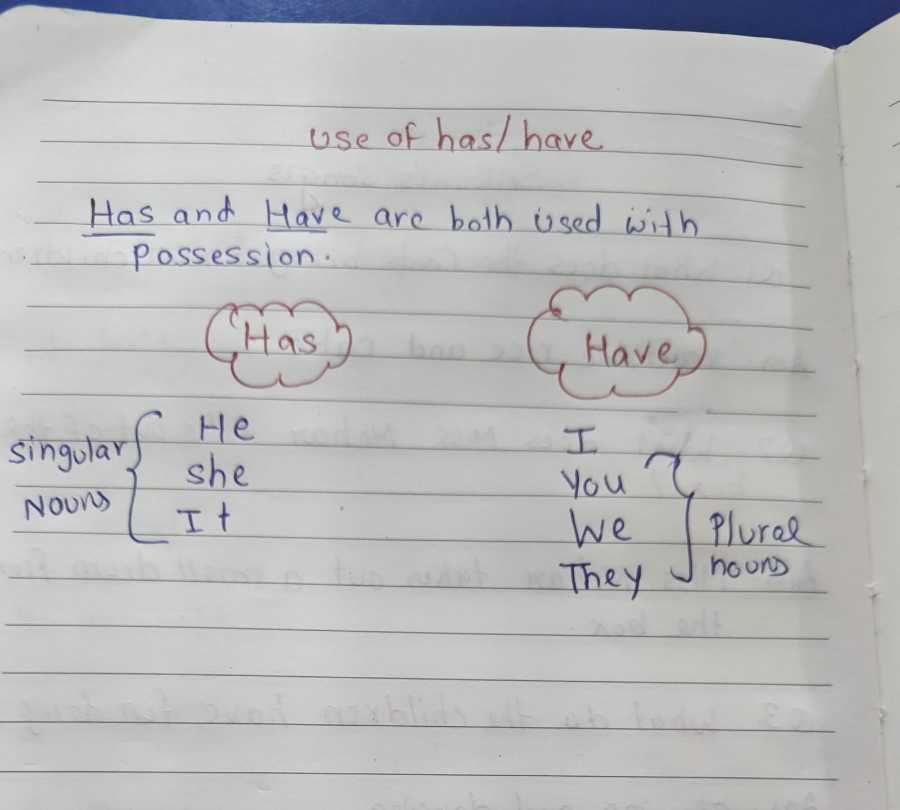 Use of has/have
Has and Have are both used with
possession.
Has
Have
Singular
Nouns
He
She
It
I
You
We
They
Plural
nouns